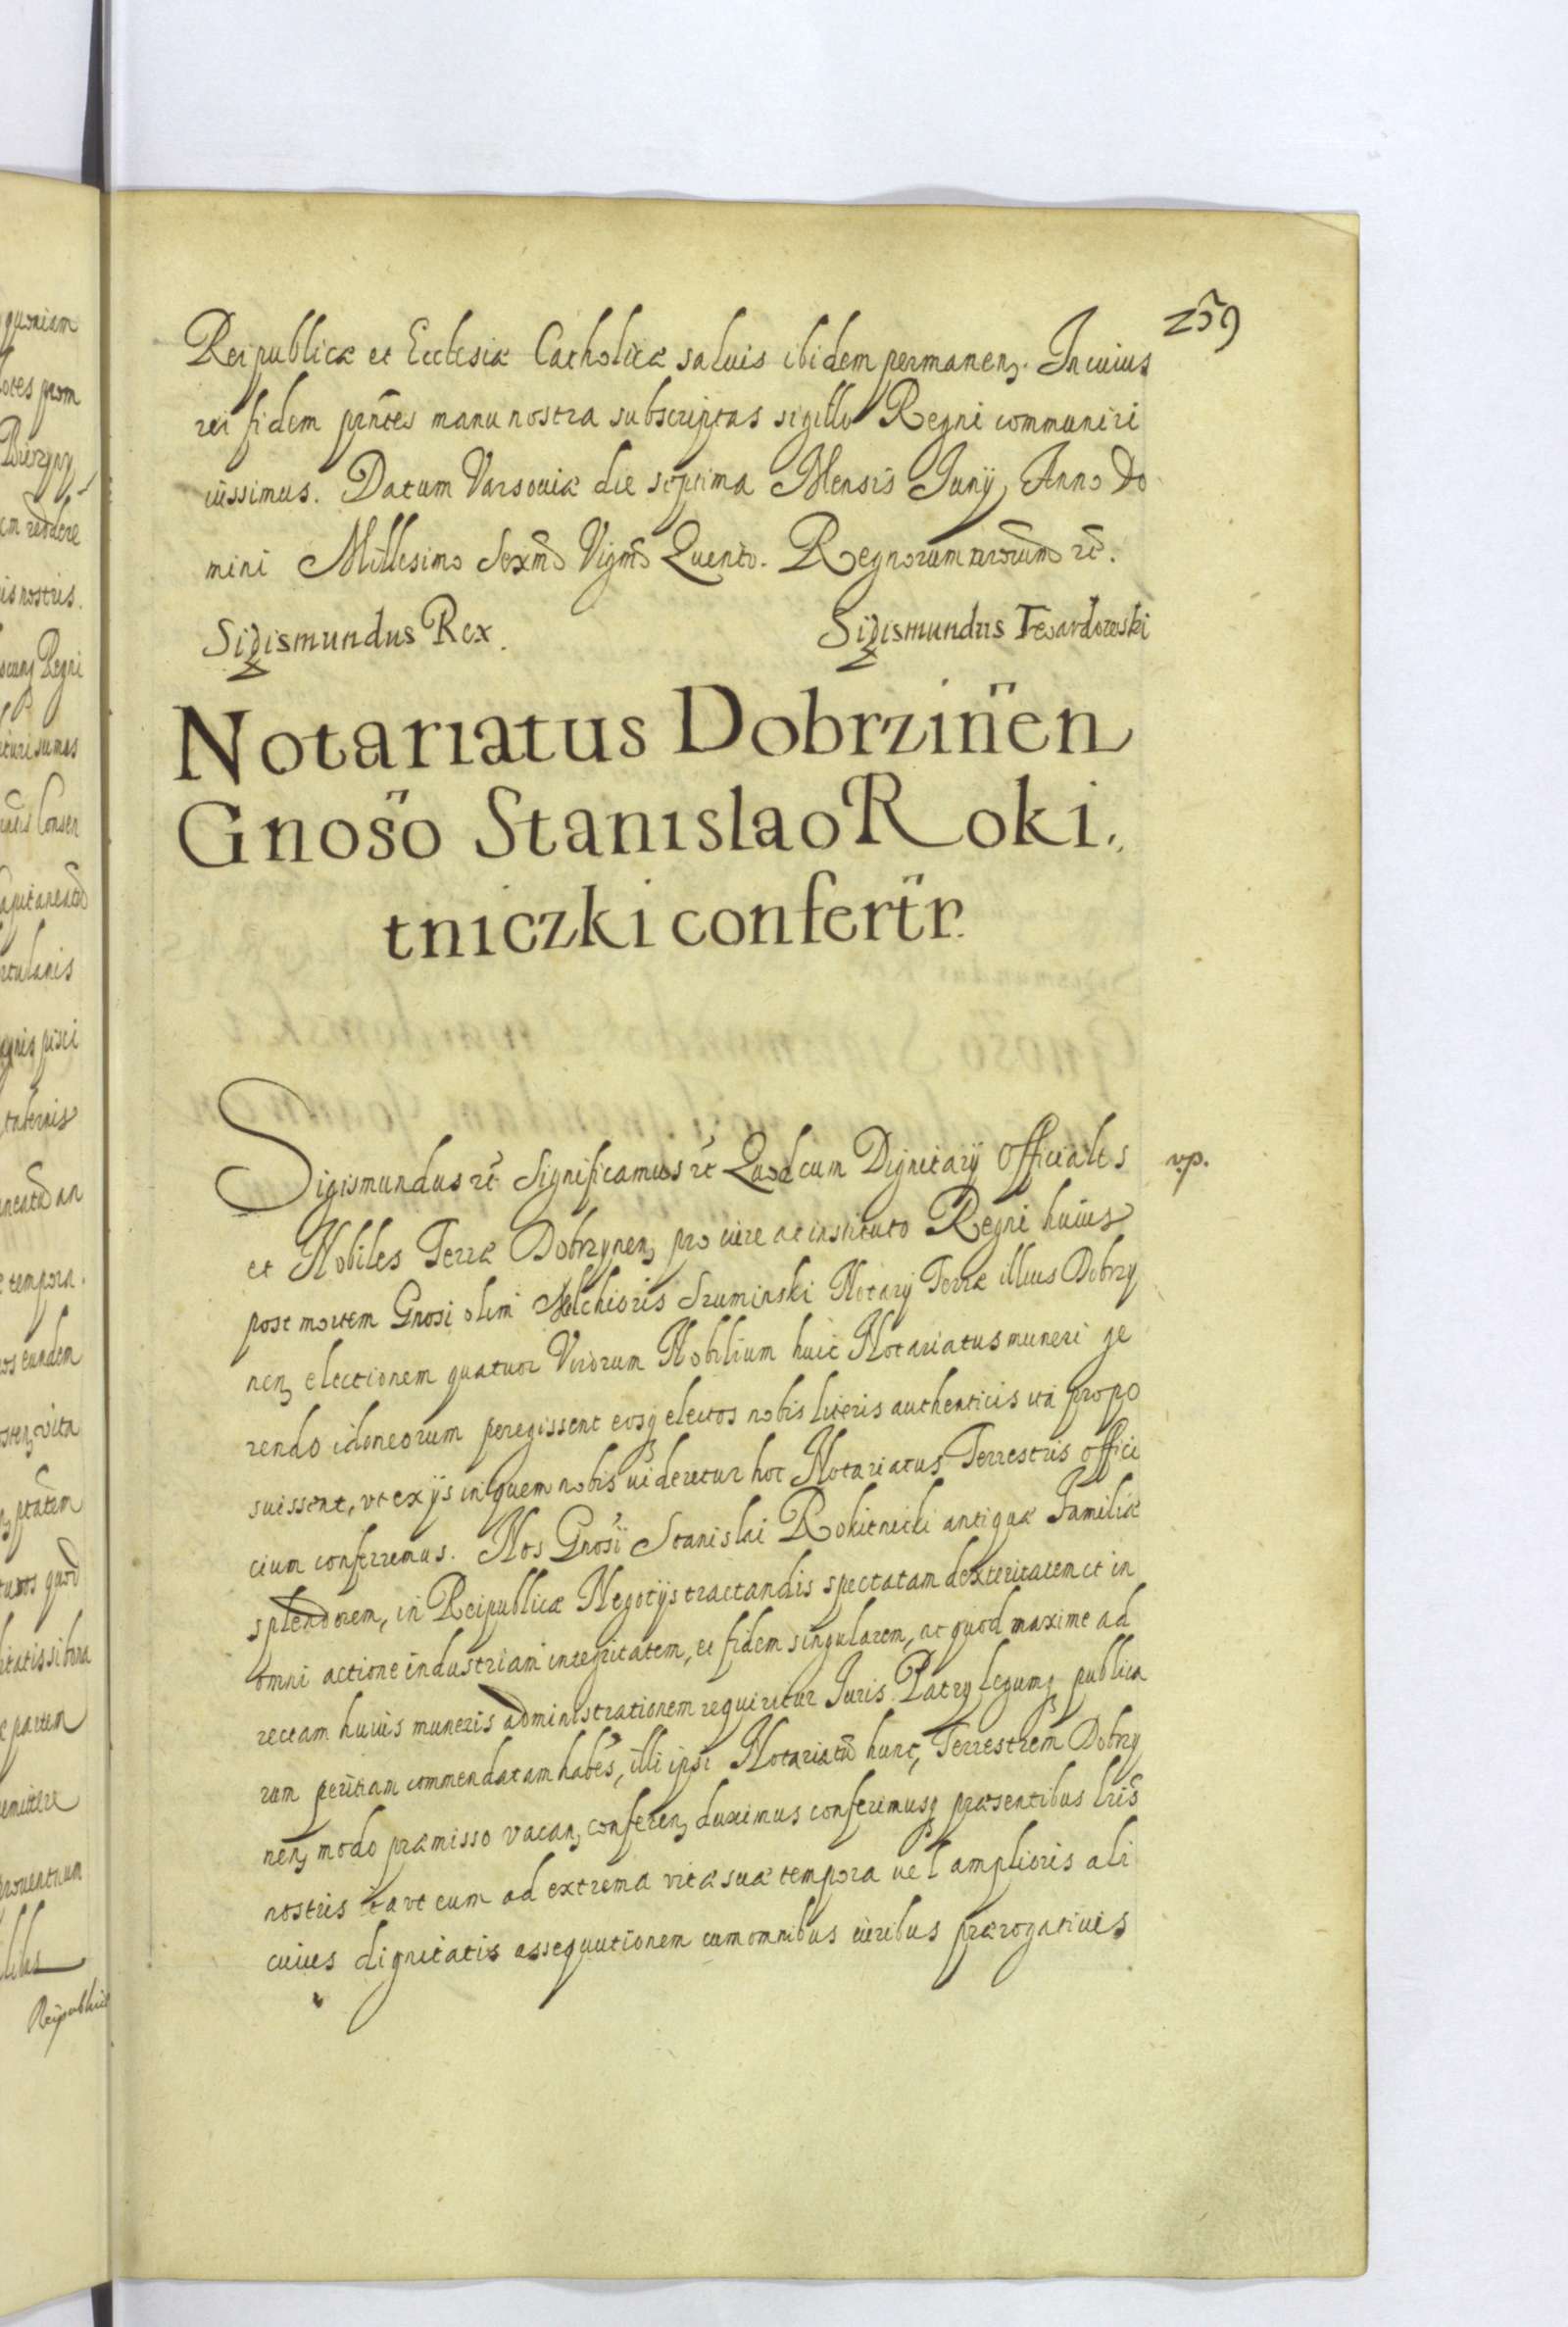 259
Reipublicæ et Ecclesiæ Catholicæ saluis ibidem permanen. In cuius
rei fidem pñtes manu nostra subscriptas sigillo Regni communiri
iussimus. Datum Varsouiæ die septima Mensis Junij, Anno Do
mini Millesimo Sexmo Vigmo Quinto. Regnorum nrorum etc.
Sigismundus Rex. Sigismundus Twardowski
Notariatus Dobrzin̈en
Gnos̈o Stanislao Roki,,
tniczki conferẗr.
Sigismundus etc Significamus etc Quod cum Dignitarij Officiales
vp.
et Nobiles Terræ Dobrzynen, pro iure ac instituto Regni huius
post mortem Gnosi olim Melchioris Sruminski Notarij Terræ illius Dobrzy
nen, electionem quatuor Virorum Nobilium huic Notariatus muneri ge
rendo idoneorum peregissent eosq electos nobis literis authenticis ita propo
suissent, vt ex ijs in quem nobis uideretur hoc Notariatus Terrestris offici
cium conferremus. Nos Gnosi Stanislai Rokitnicki antiquæ Familiæ
splendorem, in Reipublicæ Negotijs tractandis spectatam dexteritatem et in
omni actione industriam integritatem, et fidem singularem, ac quod maxime ad
rectam huius muneris administrationem requiritur Juris Patry legumq publica
rum peritiam commendatam habes, illi ipsi Notariatu hunc, Terrestrem Dobrzy
nen, modo præmisso vacan, conferen, duximus conferimusq præsentibus lris
nostris ita vt eum ad extrema vitæ suæ tempora uel amplioris ali
cuius dignitatis assequutionem cum omnibus iuribus prærogatiuis